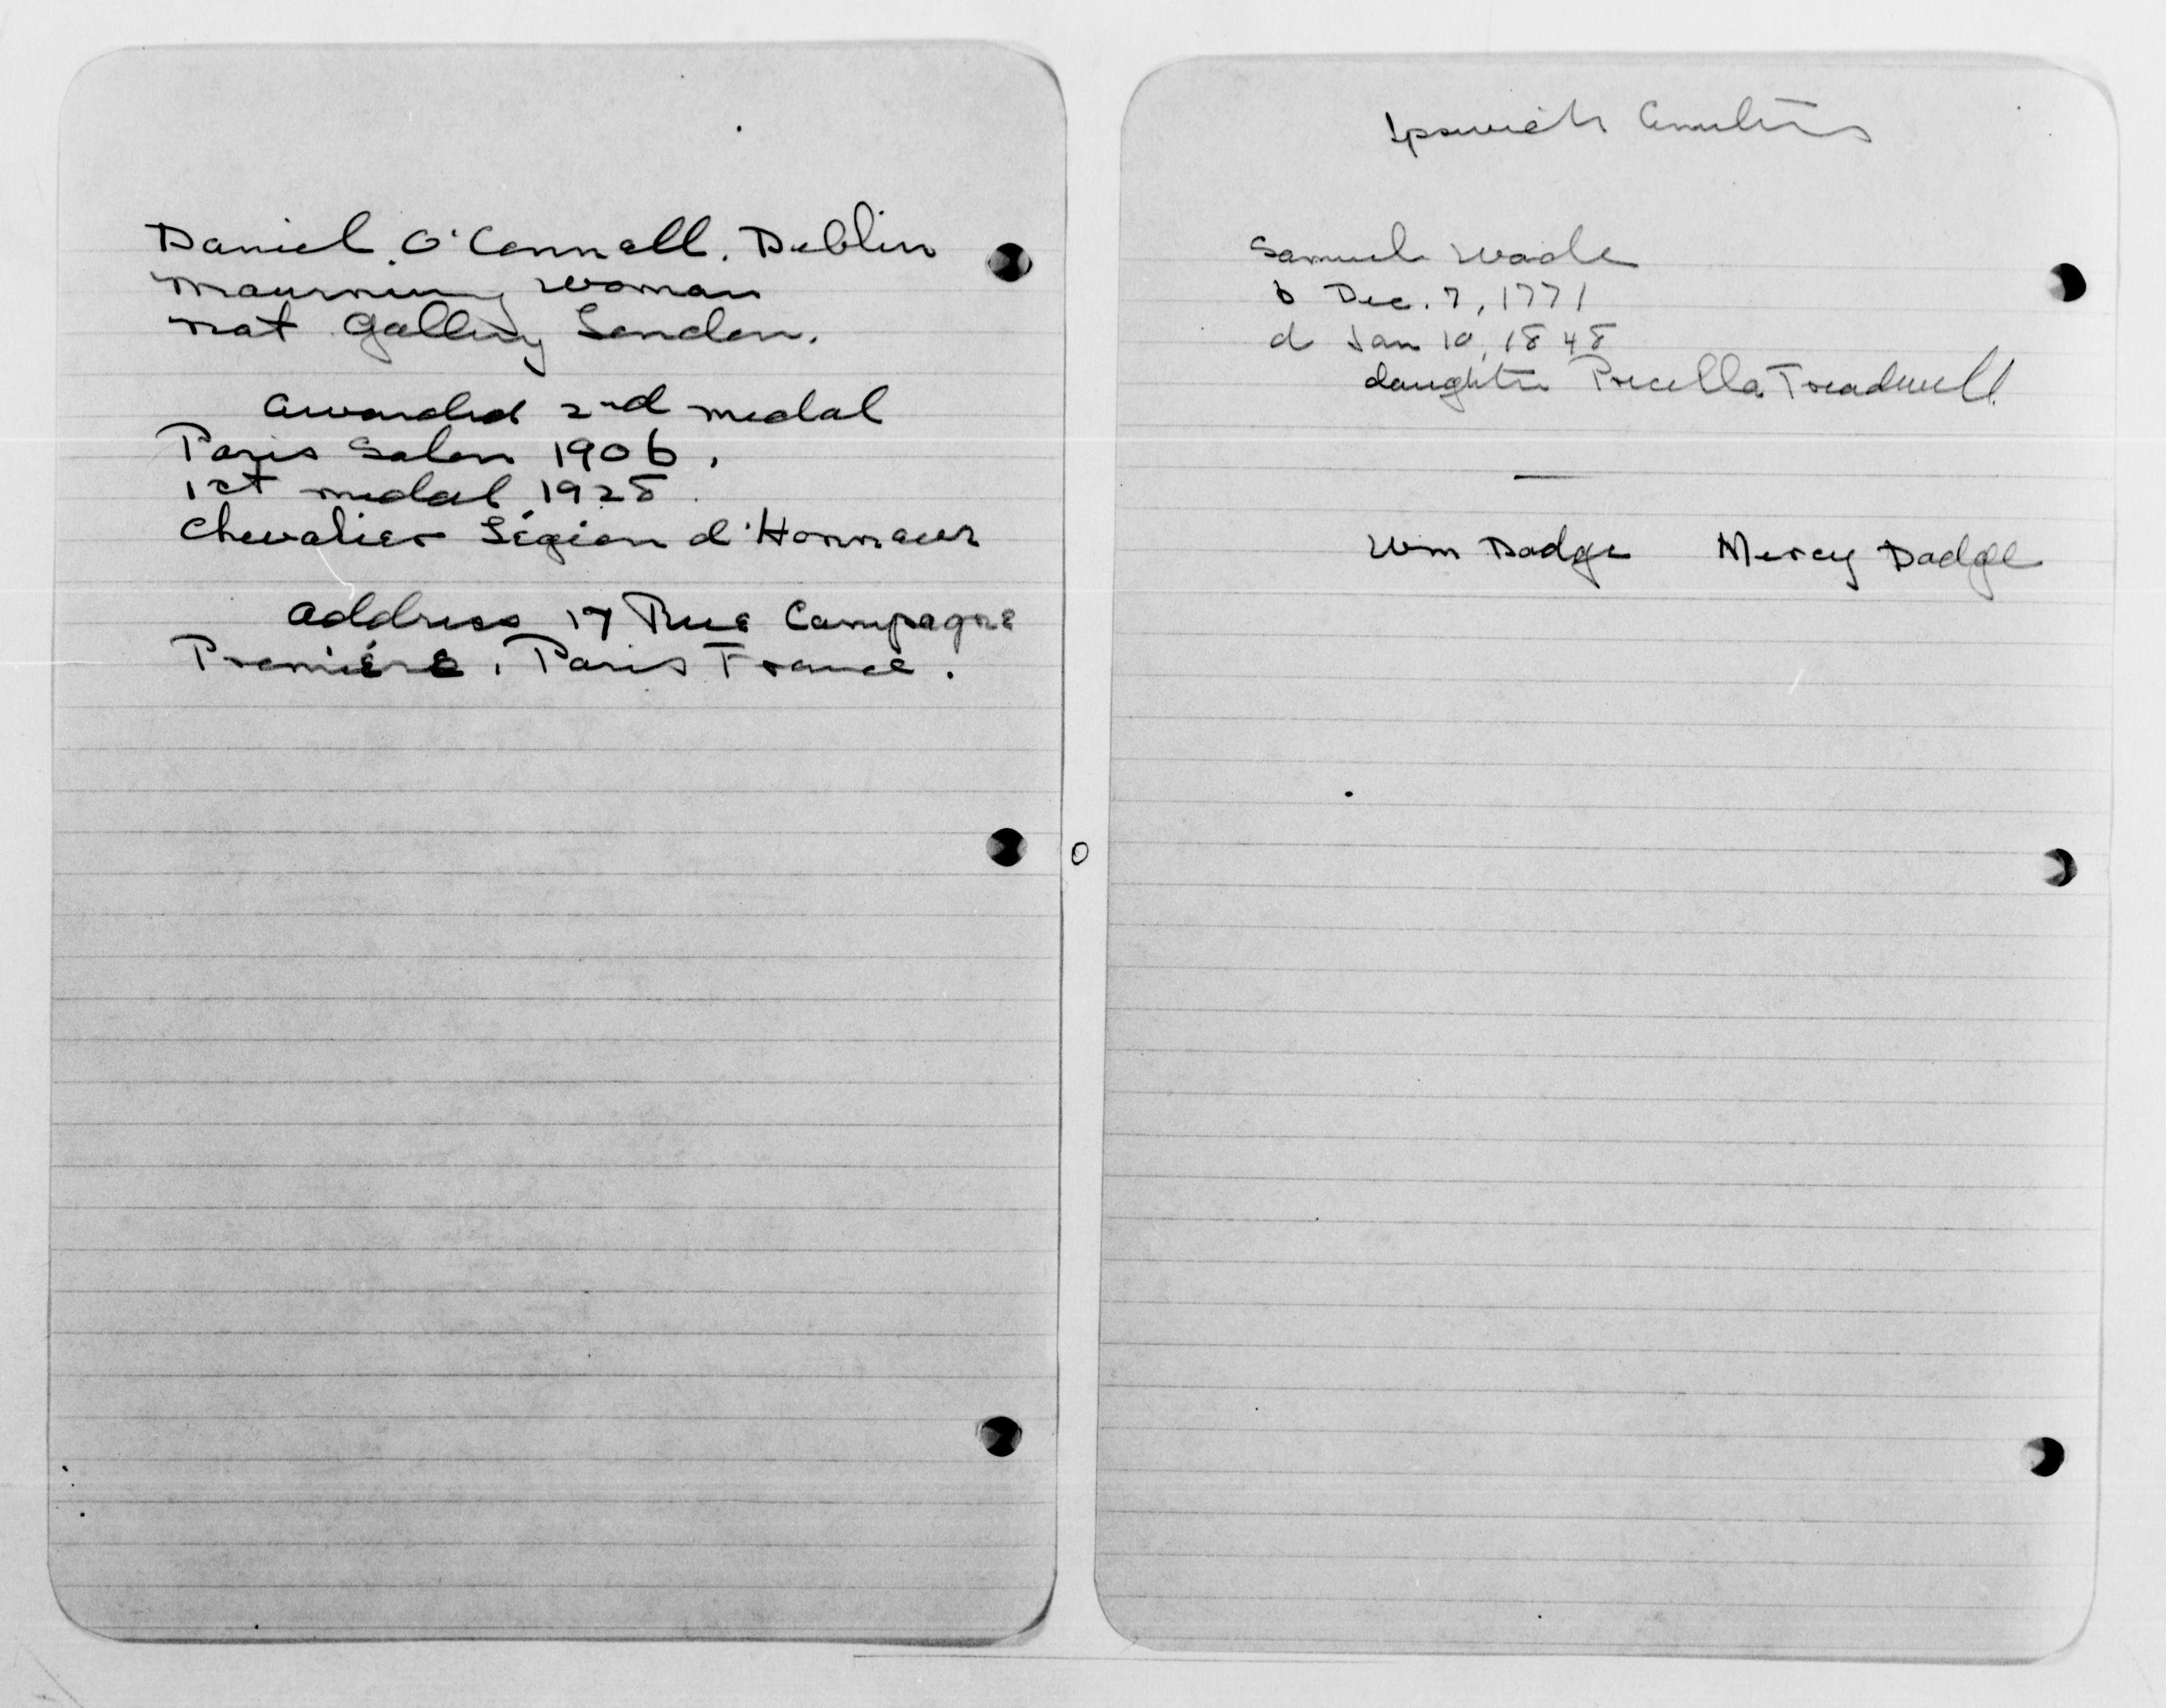 Daniel O'Connell. Dublin
Mourning woman
Nat Gallery London.
awarded 2nd medal
Paris Salon 1906.
1st medal 1928.
Chevalier Légion d'Honneur
address 17 Rue Campagne
Première, Paris France.
Ipswich
Samuel Wade
b Dec. 7, 1771
d Jan 10, 1848
daughter Precella Treadwell
Wm Dodge Mercy Dodge